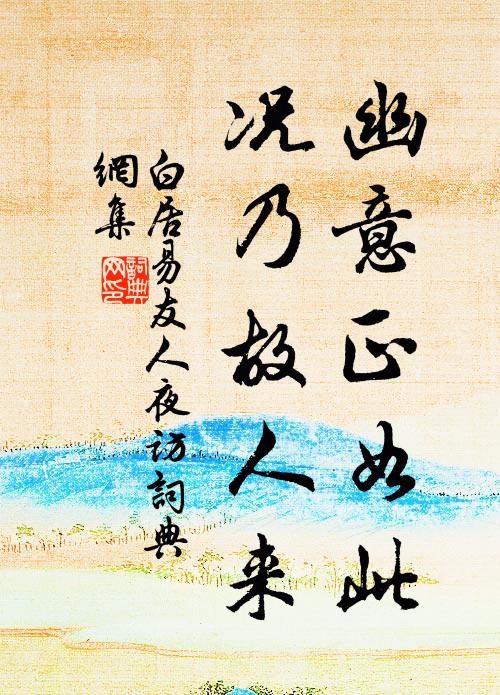 幽意正如此
况乃故人来
白居易友人夜访詞典
網集
詞典
网印